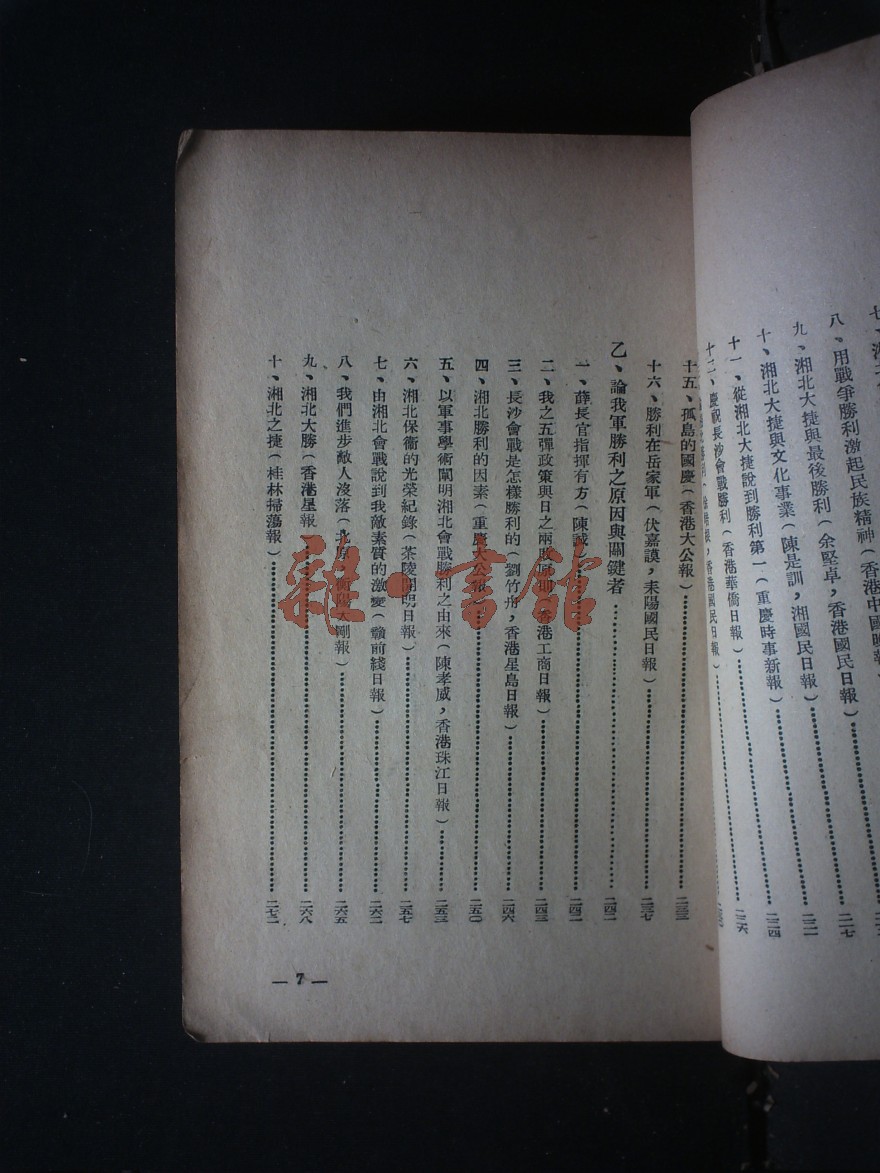 八、用戰爭勝利激起民族精神（香港中國晚報）
九、湘北大捷與最後勝利（余堅卓，香港國民日報）……二一七
十、湘北大捷與文化事業（陳是訓，湘國民日報）……二二一
十一、從湘北大捷說到勝利第一（重慶時事新報）……二二四
十二、慶祝長沙會戰勝利（香港華僑日報）……二二六
香港國民日報）
十五、孤島的國慶（香港大公報）……二三三
十六、勝利在岳家軍（伏嘉謨，耒陽國民日報）……二三七
乙、論我軍勝利之原因與關鍵者……二四二
一、薛長官指揮有方（陳誠）……二四二
二、我之五彈政策與日之兩敗（香港工商日報）……二四三
三、長沙會戰是怎樣勝利的（劉竹舟，香港星島日報）……二四六
四、湘北勝利的因素（重慶大公報）……二五〇
五、以軍事學術闡明湘北會戰勝利之由來（陳孝威，香港珠江日報）……二五三
六、湘北保衛的光榮紀錄（茶陵開明日報）……二五七
七、由湘北會戰說到我敵素質的激變（贛前綫日報）……二六二
八、我們進步敵人沒落（北原，衡陽大剛報）……二六五
九、湘北大勝（香港星報）……二六八
十、湘北之捷（桂林掃蕩報）……二七二
— 7 —
雜·書館